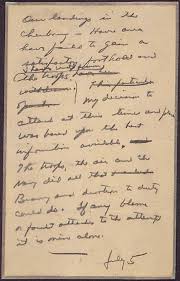 Our landings in the
Cherbourg - Havre area
have failed to gain a
satisfactory foothold and
I have withdrawn
the troops
This particular
My decision to
attack at this time and place
was based upon the best
information available
The troops, the air and the
Navy did all that
Bravery and devotion to duty
could do. If any blame
or fault attaches to the attempt
it is mine alone.
July 5